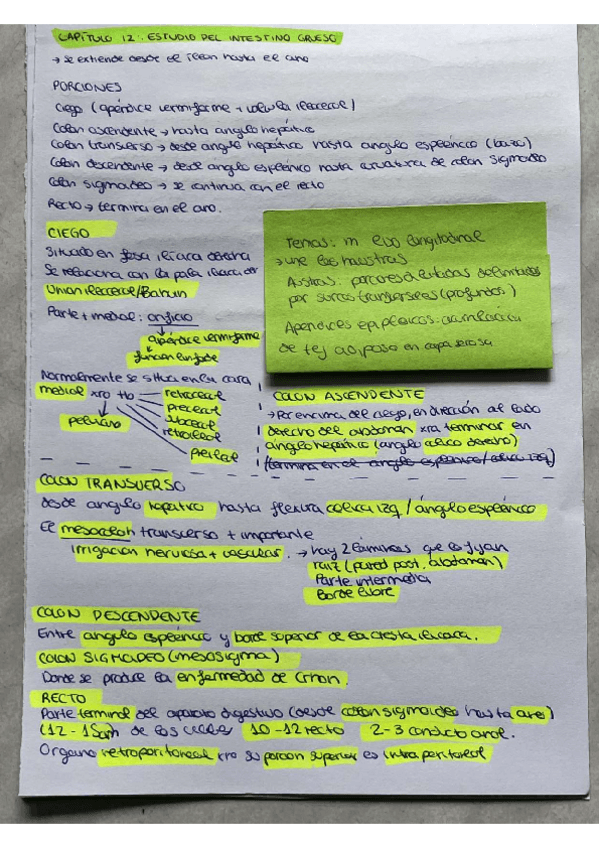 CAPÍTULO 12: ESTUDIO DEL INTESTINO GRUESO
→ se extiende desde el íleon hasta el ano
PORCIONES
Ciego (apéndice vermiforme + válvula ileocecal)
Colon ascendente → hasta angulo hepático
Colon transverso → desde angulo hepático hasta angulo esplénico (bazo)
Colon descendente → desde angulo esplénico hasta curvatura de colon sigmoideo
Colon sigmoideo → se continua con el recto
Recto → termina en el ano.
CIEGO
Situado en fosa iliaca derecha
Se relaciona con la pala iliaca der
Unión ileocecal/Bahuin
Parte + medial: orificio
apéndice vermiforme
función linfoide
Normalmente se situa en la cara
medial xro tb
pelviano
retrocecal
prececal
subcecal
retroileal
preileal
Tenias: m liso longitudinal
→ une las haustras
Austras: porciones delimitadas
por surcos transversales (profundos)
Apendices epiploicos: acumulación
de tej adiposo en capa serosa
COLON ASCENDENTE
→ Por encima del ciego, en dirección al lado
derecho del abdomen xra terminar en
ángulo hepático (angulo cólico derecho)
(termina en el angulo esplénico/cólica izq)
COLON TRANSVERSO
desde angulo hepático hasta flexura colica izq / ángulo esplénico
El mesocolon transverso + importante
irrigación nerviosa + vascular. → hay 2 láminas que lo fijan
raíz (pared post. abdomen)
Parte intermedia
Borde libre
COLON DESCENDENTE
Entre angulo esplénico y borde superior de la cresta iliaca.
COLON SIGMOIDEO (mesosigma)
Donde se produce la enfermedad de Crhon.
RECTO
Parte terminal del aparato digestivo (desde colon sigmoideo hasta ano)
(12 - 15cm de los cuales 10 - 12 recto 2 - 3 conducto anal.
Organo retroperitoneal xro su porcion superior es intraperitoneal